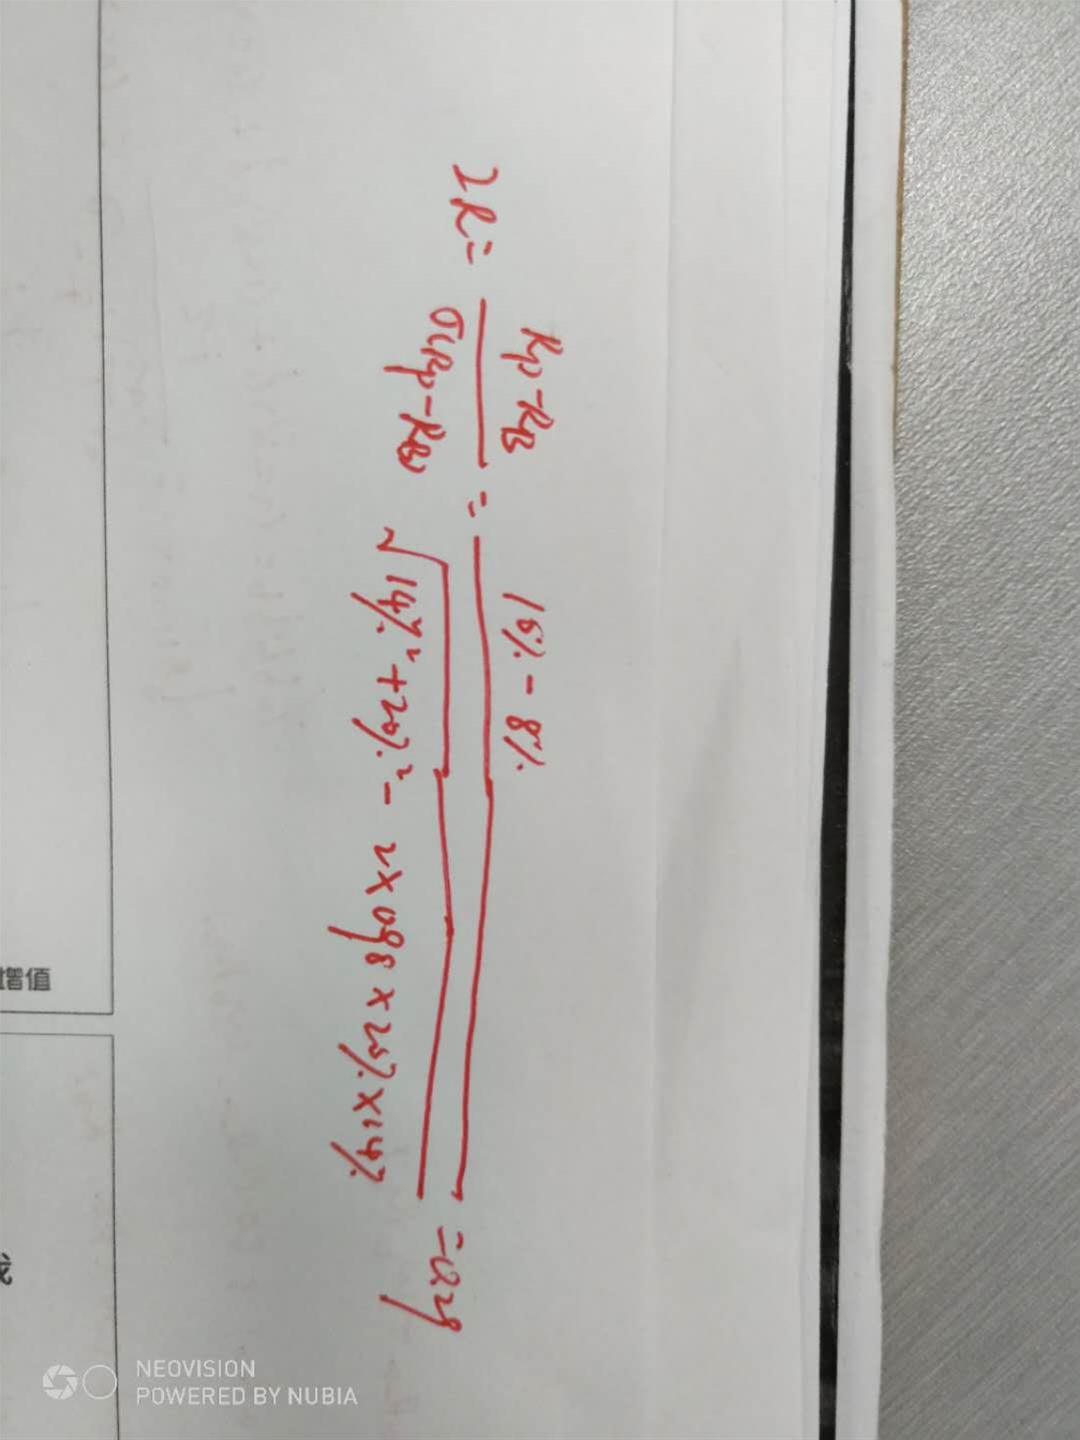 IR = (Rp - RB) / σ(Rp - RB) = (16% - 8%) / √(14%² + 20%² - 2×0.98×20%×14%)
增值
NEOVISION
POWERED BY NUBIA